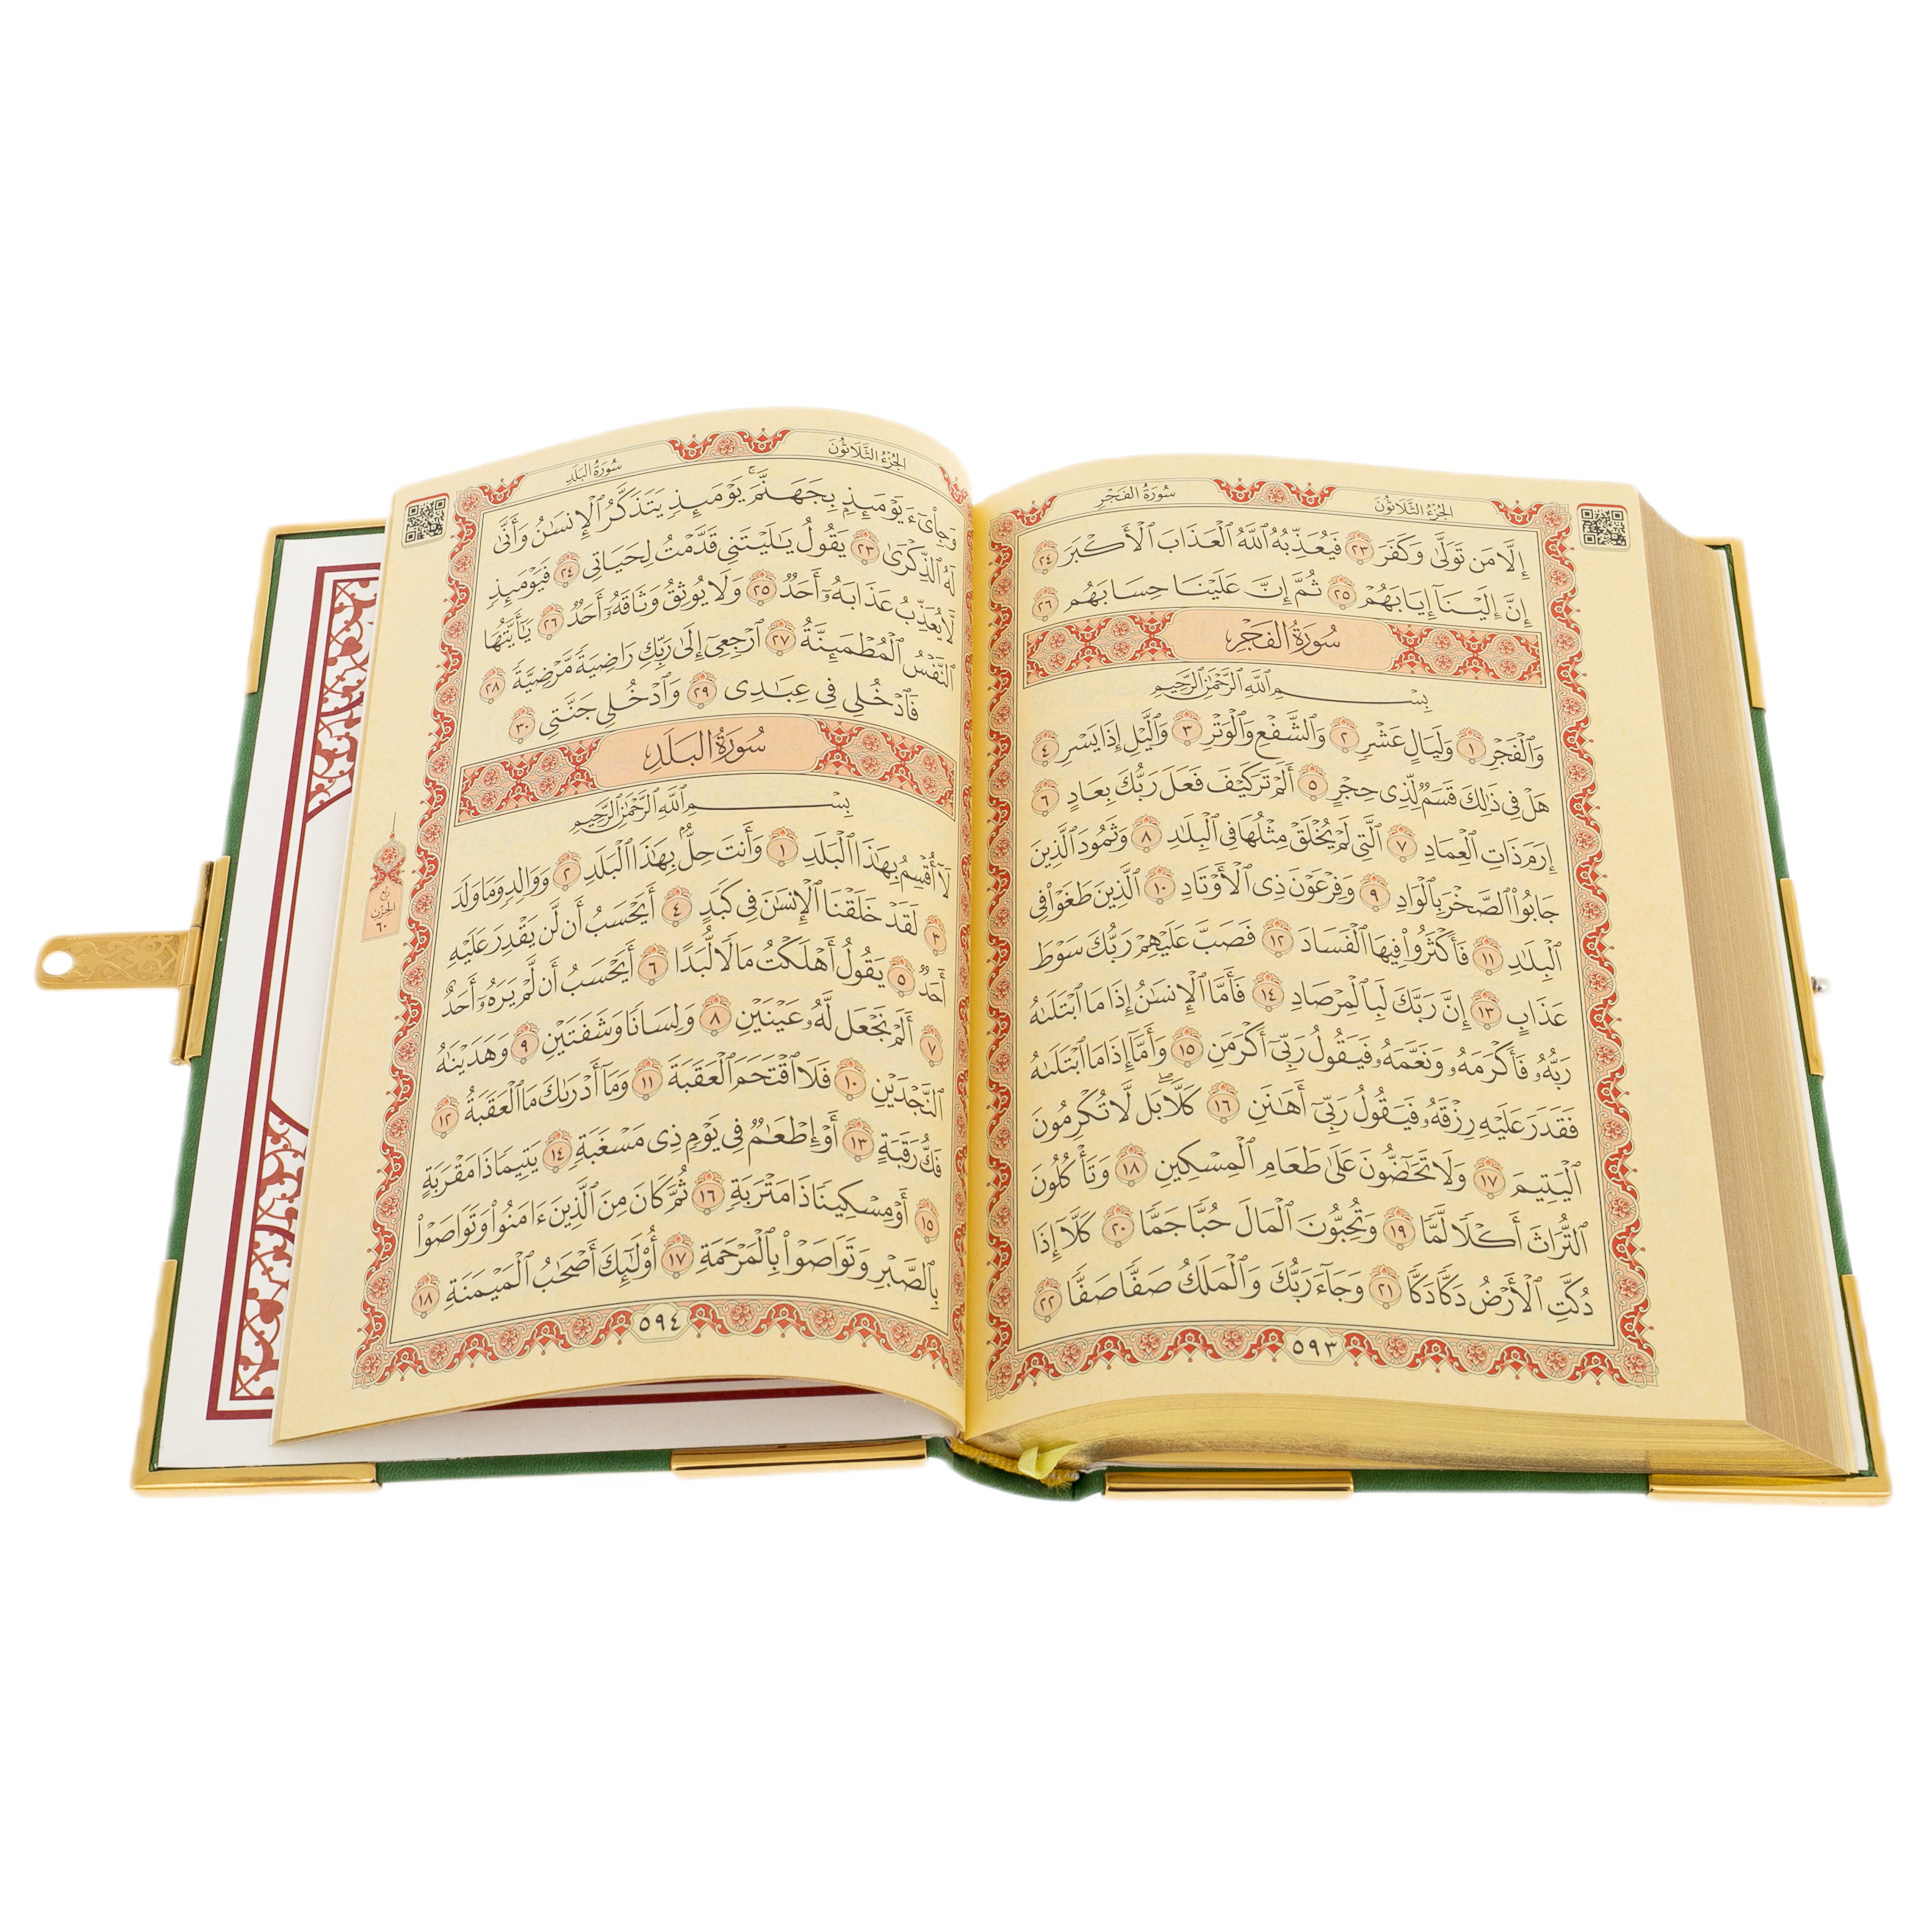 الجُزْءُ الثَّلَاثُونَ
سُورَةُ الفَجْرِ
إِلَّا مَن تَوَلَّىٰ وَكَفَرَ ٢٣ فَيُعَذِّبُهُ ٱللَّهُ ٱلْعَذَابَ ٱلْأَكْبَرَ ٢٤
إِنَّ إِلَيْنَآ إِيَابَهُمْ ٢٥ ثُمَّ إِنَّ عَلَيْنَا حِسَابَهُم ٢٦
سُورَةُ الفَجْرِ
بِسْمِ ٱللَّهِ ٱلرَّحْمَٰنِ ٱلرَّحِيمِ
وَٱلْفَجْرِ ١ وَلَيَالٍ عَشْرٍ ٢ وَٱلشَّفْعِ وَٱلْوَتْرِ ٣ وَٱلَّيْلِ إِذَا يَسْرِ ٤
هَلْ فِى ذَٰلِكَ قَسَمٌ لِّذِى حِجْرٍ ٥ أَلَمْ تَرَ كَيْفَ فَعَلَ رَبُّكَ بِعَادٍ ٦
إِرَمَ ذَاتِ ٱلْعِمَادِ ٧ ٱلَّتِى لَمْ يُخْلَقْ مِثْلُهَا فِى ٱلْبِلَٰدِ ٨ وَثَمُودَ ٱلَّذِينَ
جَابُوا۟ ٱلصَّخْرَ بِٱلْوَادِ ٩ وَفِرْعَوْنَ ذِى ٱلْأَوْتَادِ ١٠ ٱلَّذِينَ طَغَوْا۟ فِى
ٱلْبِلَٰدِ ١١ فَأَكْثَرُوا۟ فِيهَا ٱلْفَسَادَ ١٢ فَصَبَّ عَلَيْهِمْ رَبُّكَ سَوْطَ
عَذَابٍ ١٣ إِنَّ رَبَّكَ لَبِٱلْمِرْصَادِ ١٤ فَأَمَّا ٱلْإِنسَٰنُ إِذَا مَا ٱبْتَلَىٰهُ
رَبُّهُۥ فَأَكْرَمَهُۥ وَنَعَّمَهُۥ فَيَقُولُ رَبِّىٓ أَكْرَمَنِ ١٥ وَأَمَّآ إِذَا مَا ٱبْتَلَىٰهُ
فَقَدَرَ عَلَيْهِ رِزْقَهُۥ فَيَقُولُ رَبِّىٓ أَهَٰنَنِ ١٦ كَلَّا ۖ بَل لَّا تُكْرِمُونَ
ٱلْيَتِيمَ ١٧ وَلَا تَحَٰٓضُّونَ عَلَىٰ طَعَامِ ٱلْمِسْكِينِ ١٨ وَتَأْكُلُونَ
ٱلتُّرَاثَ أَكْلًا لَّمًّا ١٩ وَتُحِبُّونَ ٱلْمَالَ حُبًّا جَمًّا ٢٠ كَلَّآ إِذَا
دُكَّتِ ٱلْأَرْضُ دَكًّا دَكًّا ٢١ وَجَآءَ رَبُّكَ وَٱلْمَلَكُ صَفًّا صَفًّا ٢٢
٥٩٣
الجُزْءُ الثَّلَاثُونَ
سُورَةُ البَلَدِ
وَجِا۟ىٓءَ يَوْمَئِذٍۭ بِجَهَنَّمَ ۚ يَوْمَئِذٍ يَتَذَكَّرُ ٱلْإِنسَٰنُ وَأَنَّىٰ
لَهُ ٱلذِّكْرَىٰ ٢٣ يَقُولُ يَٰلَيْتَنِى قَدَّمْتُ لِحَيَاتِى ٢٤ فَيَوْمَئِذٍ
لَّا يُعَذِّبُ عَذَابَهُۥٓ أَحَدٌ ٢٥ وَلَا يُوثِقُ وَثَاقَهُۥٓ أَحَدٌ ٢٦ يَٰٓأَيَّتُهَا
ٱلنَّفْسُ ٱلْمُطْمَئِنَّةُ ٢٧ ٱرْجِعِىٓ إِلَىٰ رَبِّكِ رَاضِيَةً مَّرْضِيَّةً ٢٨
فَٱدْخُلِى فِى عِبَٰدِى ٢٩ وَٱدْخُلِى جَنَّتِى ٣٠
سُورَةُ البَلَدِ
بِسْمِ ٱللَّهِ ٱلرَّحْمَٰنِ ٱلرَّحِيمِ
لَآ أُقْسِمُ بِهَٰذَا ٱلْبَلَدِ ١ وَأَنتَ حِلٌّۢ بِهَٰذَا ٱلْبَلَدِ ٢ وَوَالِدٍ وَمَا وَلَدَ
٣ لَقَدْ خَلَقْنَا ٱلْإِنسَٰنَ فِى كَبَدٍ ٤ أَيَحْسَبُ أَن لَّن يَقْدِرَ عَلَيْهِ
أَحَدٌ ٥ يَقُولُ أَهْلَكْتُ مَالًا لُّبَدًا ٦ أَيَحْسَبُ أَن لَّمْ يَرَهُۥٓ أَحَدٌ
٧ أَلَمْ نَجْعَل لَّهُۥ عَيْنَيْنِ ٨ وَلِسَانًا وَشَفَتَيْنِ ٩ وَهَدَيْنَٰهُ
ٱلنَّجْدَيْنِ ١٠ فَلَا ٱقْتَحَمَ ٱلْعَقَبَةَ ١١ وَمَآ أَدْرَىٰكَ مَا ٱلْعَقَبَةُ ١٢
فَكُّ رَقَبَةٍ ١٣ أَوْ إِطْعَٰمٌ فِى يَوْمٍ ذِى مَسْغَبَةٍ ١٤ يَتِيمًا ذَا مَقْرَبَةٍ
١٥ أَوْ مِسْكِينًا ذَا مَتْرَبَةٍ ١٦ ثُمَّ كَانَ مِنَ ٱلَّذِينَ ءَامَنُوا۟ وَتَوَاصَوْا۟
بِٱلصَّبْرِ وَتَوَاصَوْا۟ بِٱلْمَرْحَمَةِ ١٧ أُو۟لَٰٓئِكَ أَصْحَٰبُ ٱلْمَيْمَنَةِ ١٨
ربع
الحزب
٦٠
٥٩٤